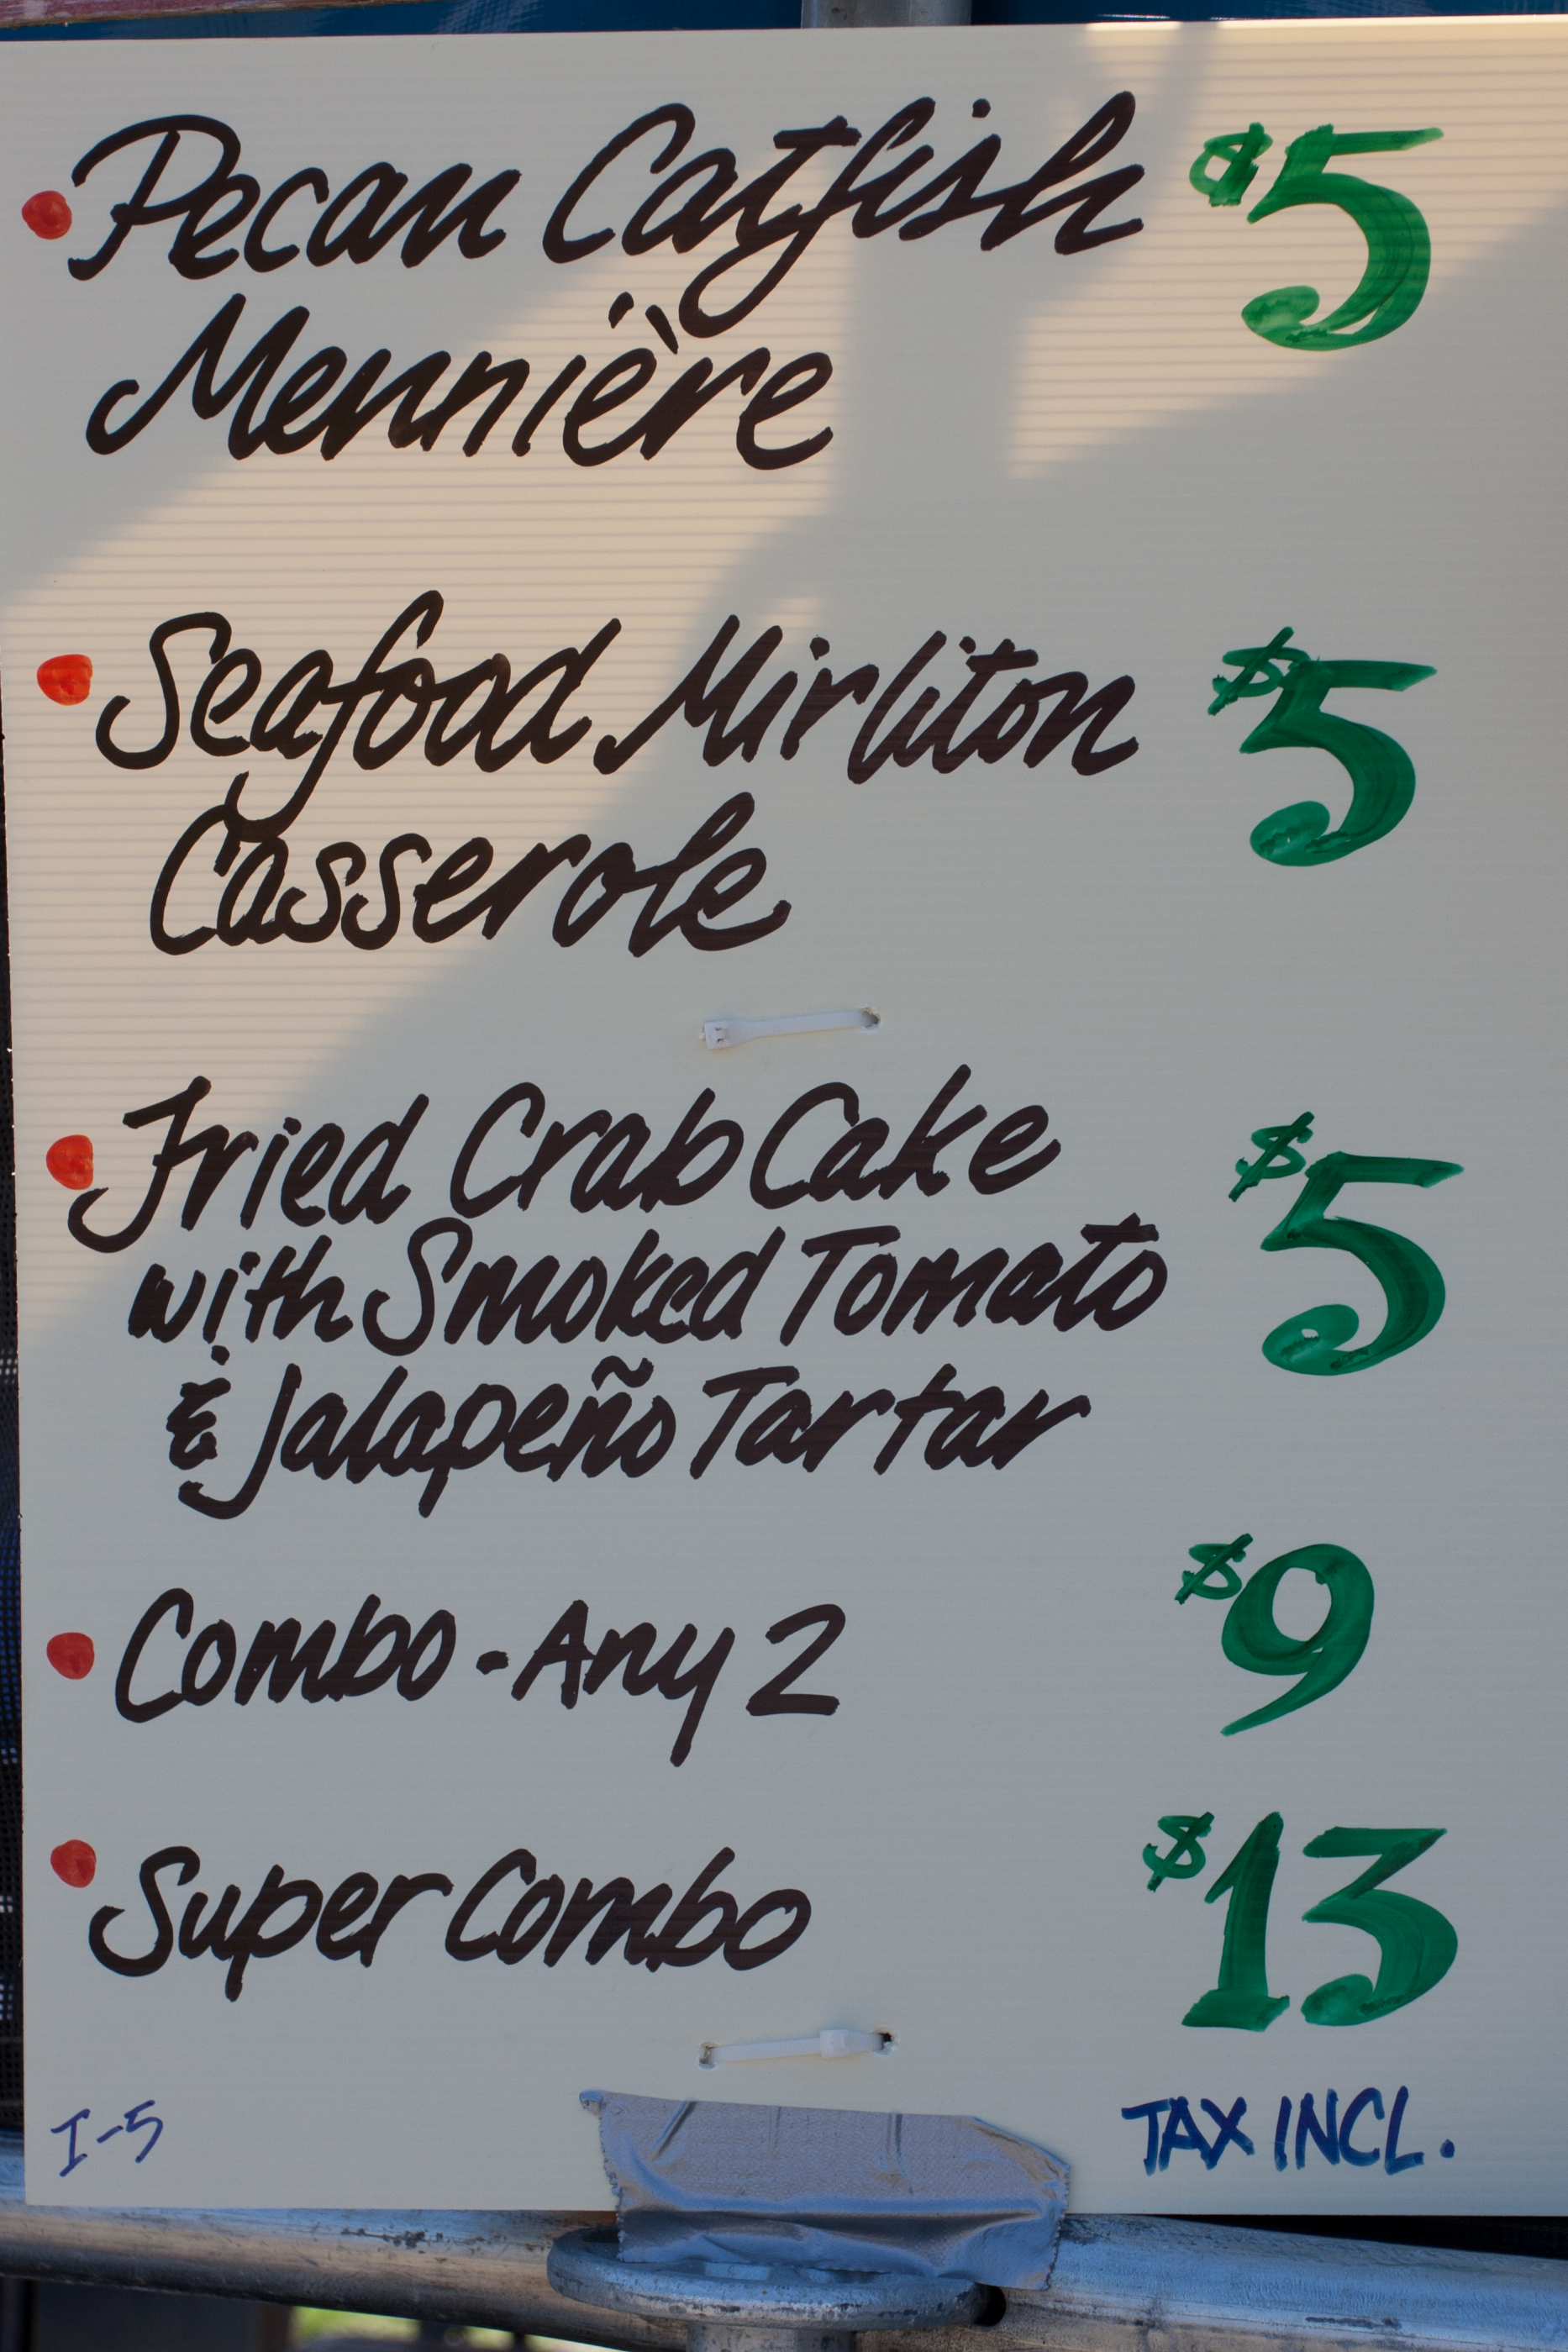 Pecan Catfish $5
Mennière
Seafood Mirliton $5
Casserole
Fried Crab Cake $5
with Smoked Tomato
& Jalapeño Tartar
Combo - Any 2 $9
Super Combo $13
I-5
TAX INCL.